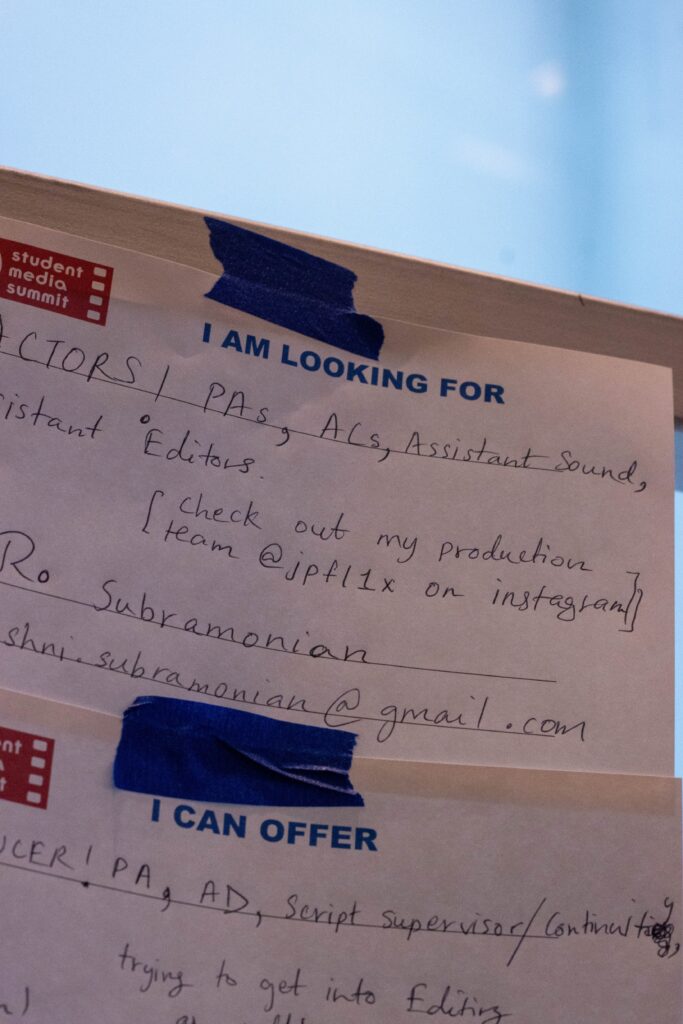 student
media
summit
I AM LOOKING FOR
ACTORS! PAs, ACs, Assistant Sound,
istant Editors.
[check out my production
team @jpfl1x on instagram]
R. Subramonian
shni.subramonian@gmail.com
I CAN OFFER
UCER! PA, AD, Script supervisor/Continuity,
trying to get into Editing